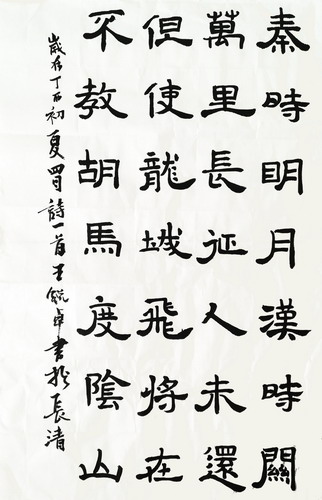 秦時明月漢時關
萬里長征人未還
但使龍城飛將在
不教胡馬度陰山
歲在丁酉初夏詩一首王毓卓書於長清